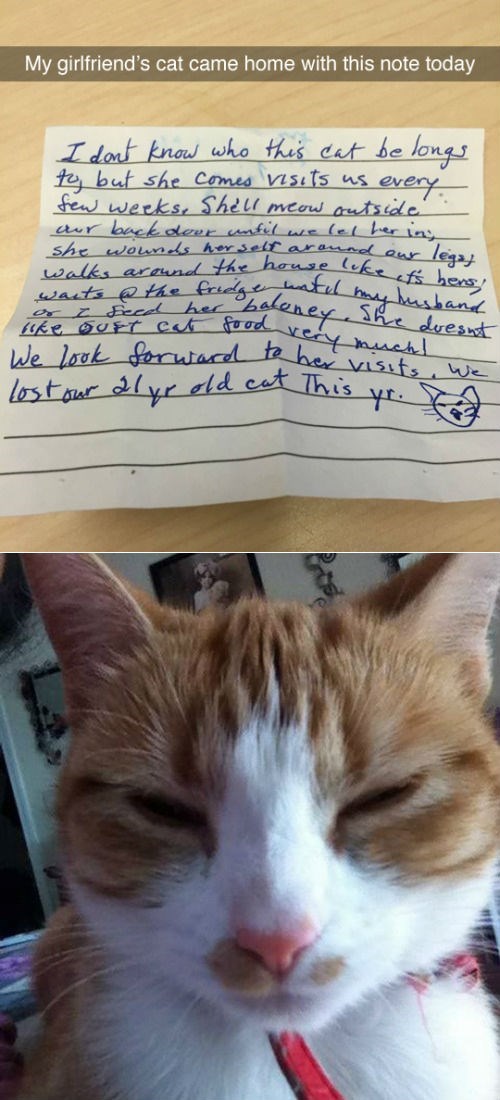 My girlfriend's cat came home with this note today
I dont know who this cat belongs
to, but she comes visits us every
few weeks. She'll meow outside
our back door until we let her in,
she wounds herself around our legs,
walks around the house like it's hers,
waits @ the fridge until my husband
or I feed her baloney. She doesnt
like OUR cat food very much!
We look forward to her visits. We
lost our 21 yr old cat This yr.